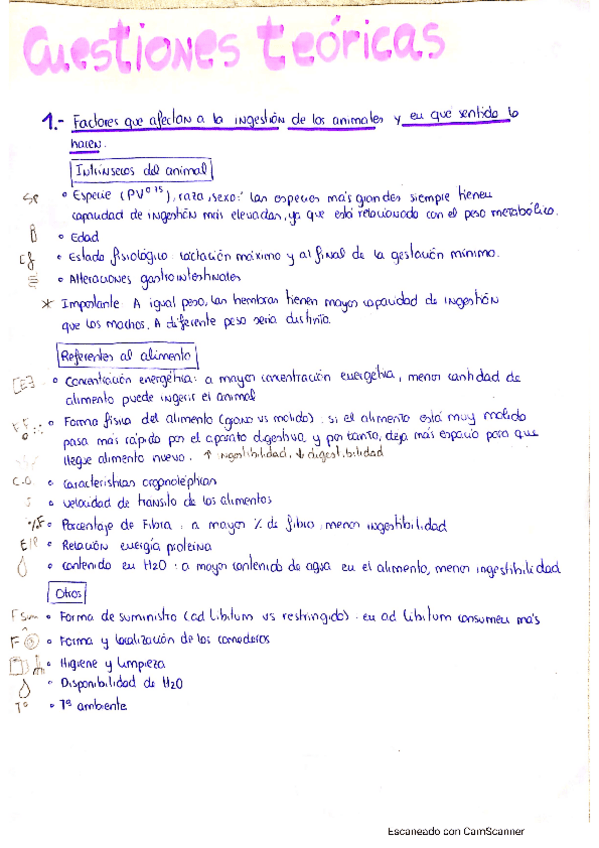 Cuestiones teóricas
1.- Factores que afectan a la ingestión de los animales y en que sentido lo
hacen.
Intrínsecos del animal
Sp • Especie (PV^0'75), raza, sexo: las especies más grandes siempre tienen
capacidad de ingestión mas elevadas, ya que está relacionado con el peso metabólico.
• Edad
Ef • Estado fisiológico: lactación máximo y al final de la gestación mínimo.
• Alteraciones gastrointestinales
* Importante A igual peso, las hembras tienen mayor capacidad de ingestión
que los machos. A diferente peso seria distinta.
Referentes al alimento
[CE] • Concentración energética: a mayor concentración energética, menor cantidad de
alimento puede ingerir el animal
F F • Forma física del alimento (grano vs molido): si el alimento está muy molido
pasa más rápido por el aparato digestivo, y por tanto, deja más espacio para que
llegue alimento nuevo. ↑ ingestibilidad, ↓ digestibilidad
C.O • Características organolépticas
• Velocidad de transito de los alimentos
%F • Porcentaje de Fibra: a mayor % de fibra, menor ingestibilidad
E/P • Relación energía proteina
• contenido en H2O: a mayor contenido de agua en el alimento, menor ingestibilidad
Otros
F sum • Forma de suministro (ad libitum vs restringido): en ad libitum consumen más
F • Forma y localización de los comederos
• Higiene y limpieza
• Disponibilidad de H2O
Tª • Tª ambiente
Escaneado con CamScanner